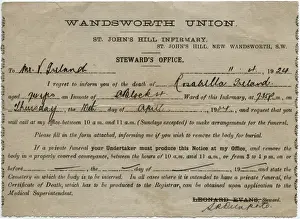 WANDSWORTH UNION.
ST. JOHN'S HILL INFIRMARY,
ST. JOHN'S HILL, NEW WANDSWORTH, S.W.
STEWARD'S OFFICE,
To Mr. Ireland 11 4 1924
I regret to inform you of the death of Rosabella Ireland
aged 40yrs an Inmate of Block Ward of this Infirmary, at on
Thursday the 10th day of April 1924 and to request that you
will call at my office between 10 a.m. and 11 a.m. (Sundays excepted) to make arrangements for the funeral.
Please fill in the form attached, informing me if you wish to remove the body for burial.
If a private funeral your Undertaker must produce this Notice at my Office, and remove the
body in a properly covered conveyance, between the hours of 10 a.m. and 11 a.m., or from 2 p.m. to 4 p.m. on
between the day of and the day of 19 and state the
Cemetery to which the body is to be removed. In all cases where it is intended to have a private funeral, the
Certificate of Death, which has to be produced to the Registrar, can be obtained upon application to the
Medical Superintendent.
LEONARD EVANS, Steward.